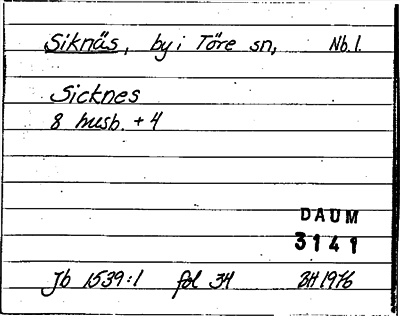 Siknäs, by i Töre sn, Nb. l.
Sicknes
8 husb. + 4
DAUM
3141
Jb 1539:1 fol 34 BH 1976